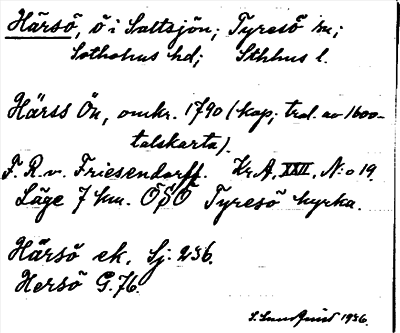 Härsö, ö i Saltsjön; Tyresö sn;
Sotholms hd; Sthlms l.
Härss Ön, omkr. 1790 (kop. trol. av 1600-
talskarta).
F. R. v. Friesendorff. Kr.A, XXII, N:o 19.
Läge 7 km. ÖSÖ Tyresö kyrka.
Härsö ek. Sj: 236.
Hersö G. 76.
S. Lundquist 1936.